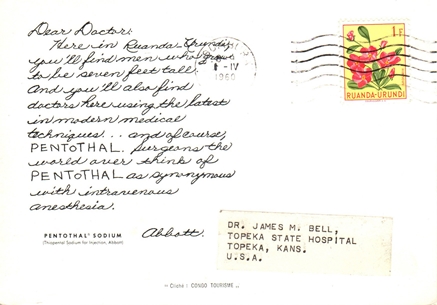 Dear Doctor:
Here in Ruanda-Urundi
you'll find men who grow
to be seven feet tall.
And you'll also find
doctors here using the latest
in modern medical
techniques... and of course,
PENTOTHAL. Surgeons the
world over think of
PENTOTHAL as synonymous
with intravenous
anesthesia.
Abbott.
PENTOTHAL® SODIUM
(Thiopental Sodium for Injection, Abbott)
-IV
1960
1F
RUANDA-URUNDI
DR. JAMES M. BELL,
TOPEKA STATE HOSPITAL
TOPEKA, KANS.
U.S.A.
— Cliché : CONGO TOURISME —